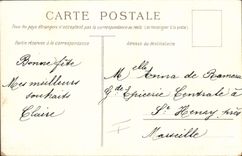 CARTE POSTALE
Tous les pays étrangers n'acceptent pas la correspondance au recto. (Se renseigner à la poste)
Partie réservée à la correspondance
Adresse du destinataire
Bonne fête
Mes meilleurs
souhaits
Claire
Melle Anna de
Gde Epicerie Centrale à
St Henry près
Marseille